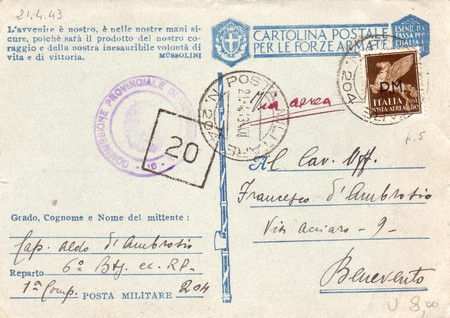 21.4.43
L'avvenire è nostro, è nelle nostre mani si-
cure, poichè sarà il prodotto del nostro co-
raggio e della nostra inesauribile volontà di
vita e di vittoria.
MUSSOLINI
CARTOLINA POSTALE
PER LE FORZE ARMATE
ESENTE DA
TASSA PER
L'ITALIA
POSTA MILITARE
N. 204
204
D.M.
ITALIA
POSTA AEREA
50
Via aerea
COMMISSIONE PROVINCIALE DI
16
20
p.5
Al Cav. Uff.
Francesco d'Ambrosio
Via acciaro - 9 -
Benevento
Grado, Cognome e Nome del mittente:
Cap. Aldo d'Ambrosio
Reparto 6° Btg. cc. RR.
1ª Comp. POSTA MILITARE 204
U 8,00